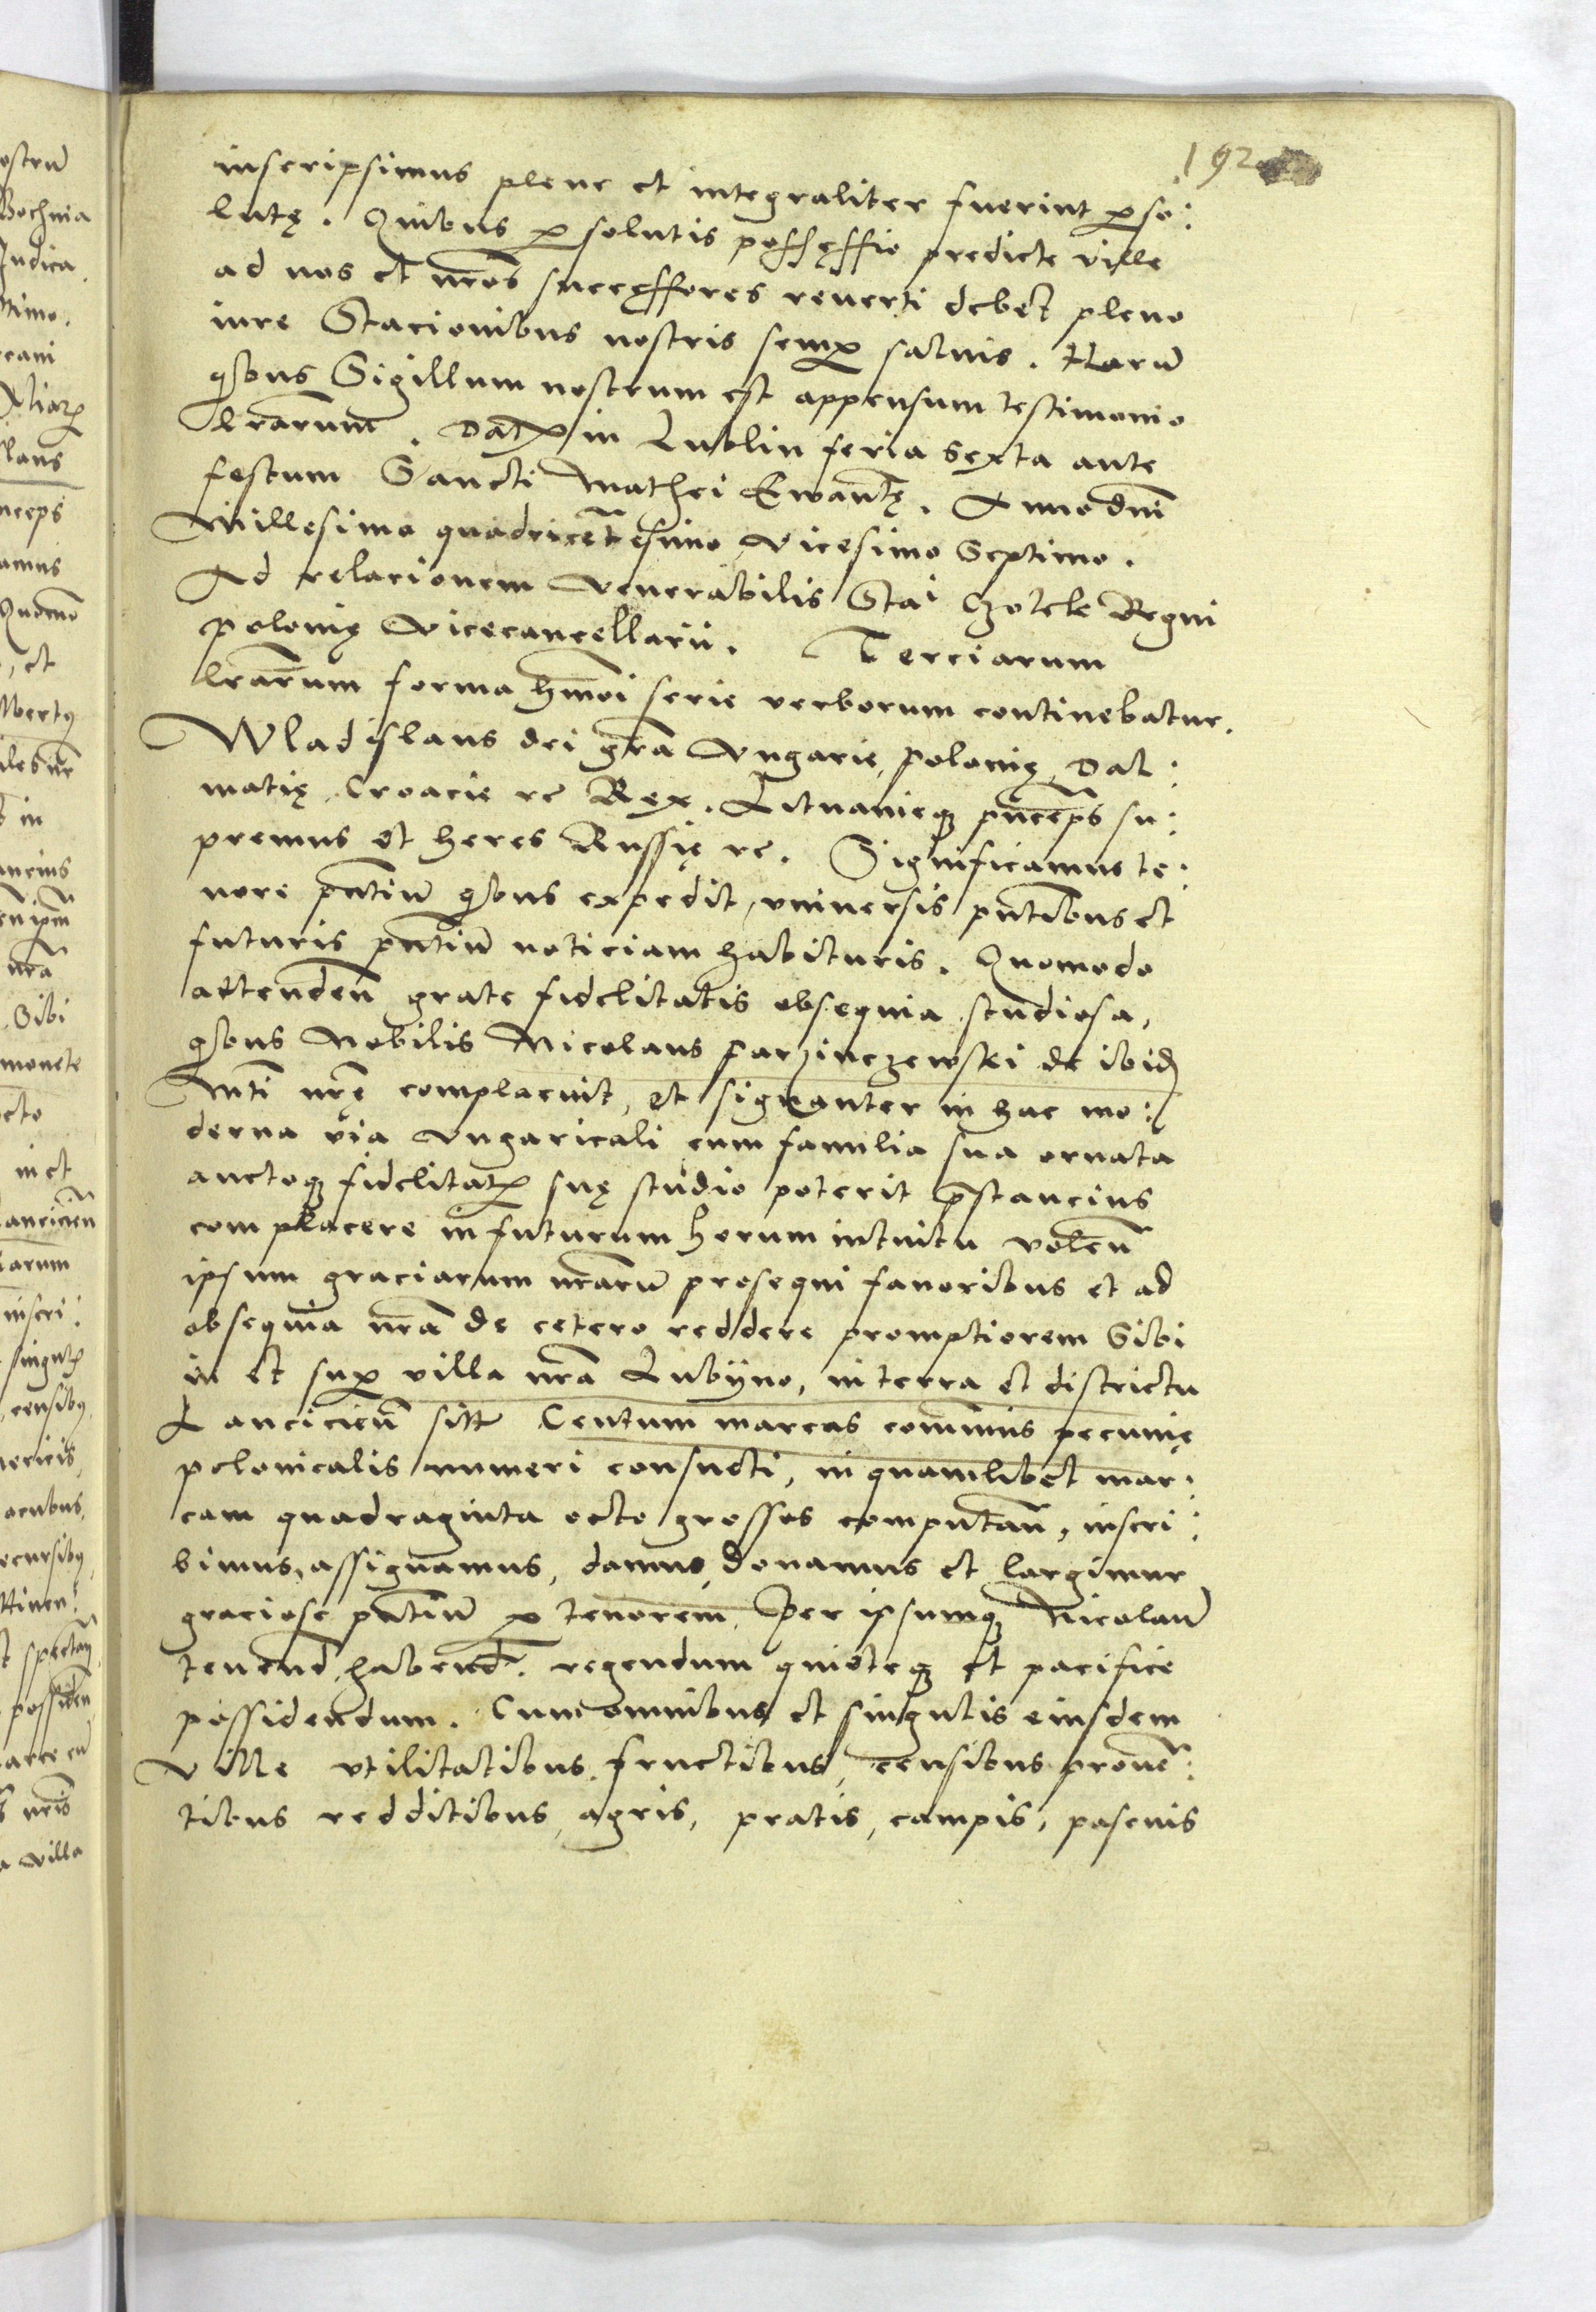 192
inscripsimus plene et integraliter fuerint perso:
lutę. Quibus persolutis possęssio predicte ville
ad nos et nr̄os succęssores reuerti debet pleno
iure Stacionibus nostris semper saluis. Harū
qibus Sigillum nostrum est appensum testimonio
lr̄arum. Datum in Lublin feria sexta ante
festum Sancti Mathei Ewāntę. Anno dn̄i
Millesimo quadricēntesimo vicesimo Septimo.
Ad relacionem venerabilis Stai Czolek Regni
polonię vicecancellarii. Terciarum
lr̄arum forma hm̄oi serie verborum continebatur.
Wladislaus dei grā Vngarie, polonię, Dal:
matię, Croacie rc Rex. Lituanieqꝫ pn̄ceps su:
premus et heres Russię rc. Significamus te:
nore pn̄tiū qibus expedit, vniuersis pn̄tibus et
futuris pn̄tiū noticiam habituris. Quomodo
attenden̄ grate fidelitatis obsequia studiosa,
qibus Nobilis Nicolaus parzinczewski de ibid
Mti nr̄ę complacuit, et signanter in hac mo:
derna via Vngaricali cum familia sua ornata
auctoqꝫ fidelitatis suę studio poterit prestancius
complacere in futurum horum intuitu volen̄
ipsum graciarum nr̄arū prosequi fauoribus et ad
obsequia nr̄a de cetero reddere promptiorem Sibi
in et super villa nr̄a Lubyno, in terra et districtu
Lancicien̄ sitte Centum marcas com̄unis pecunię
polonicalis numeri consueti, in quamlibet mar:
cam quadraginta octo grossos computan̄, inscri:
bimus, assignamus, damus, donamus et largimur
graciose pn̄tiū per tenorem. Per ipsumqꝫ Nicolaū
tenend, habend. regendum quieteqꝫ et pacifice
possidendum. Cum omnibus et singulis eiusdem
ville vtilitatibus. fructibus, censibus prouen̄:
tibus redditibus, agris, pratis, campis, pascuis